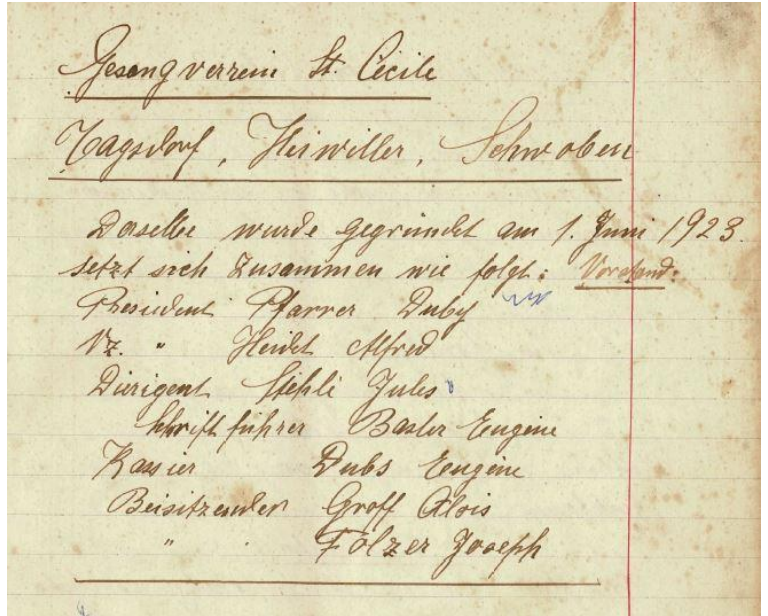 Gesangverein St. Cécile
Tagsdorf, Heiwiller, Schwoben
Derselbe wurde gegründet am 1. Juni 1923.
setzt sich zusammen wie folgt: Vorstand:
President Pfarrer Duby
Vz. " Heidet Alfred
Dirigent Stehli Jules
Schriftführer Basler Eugène
Kassier Dubs Eugène
Beisitzender Groff Alois
" Folzer Joseph